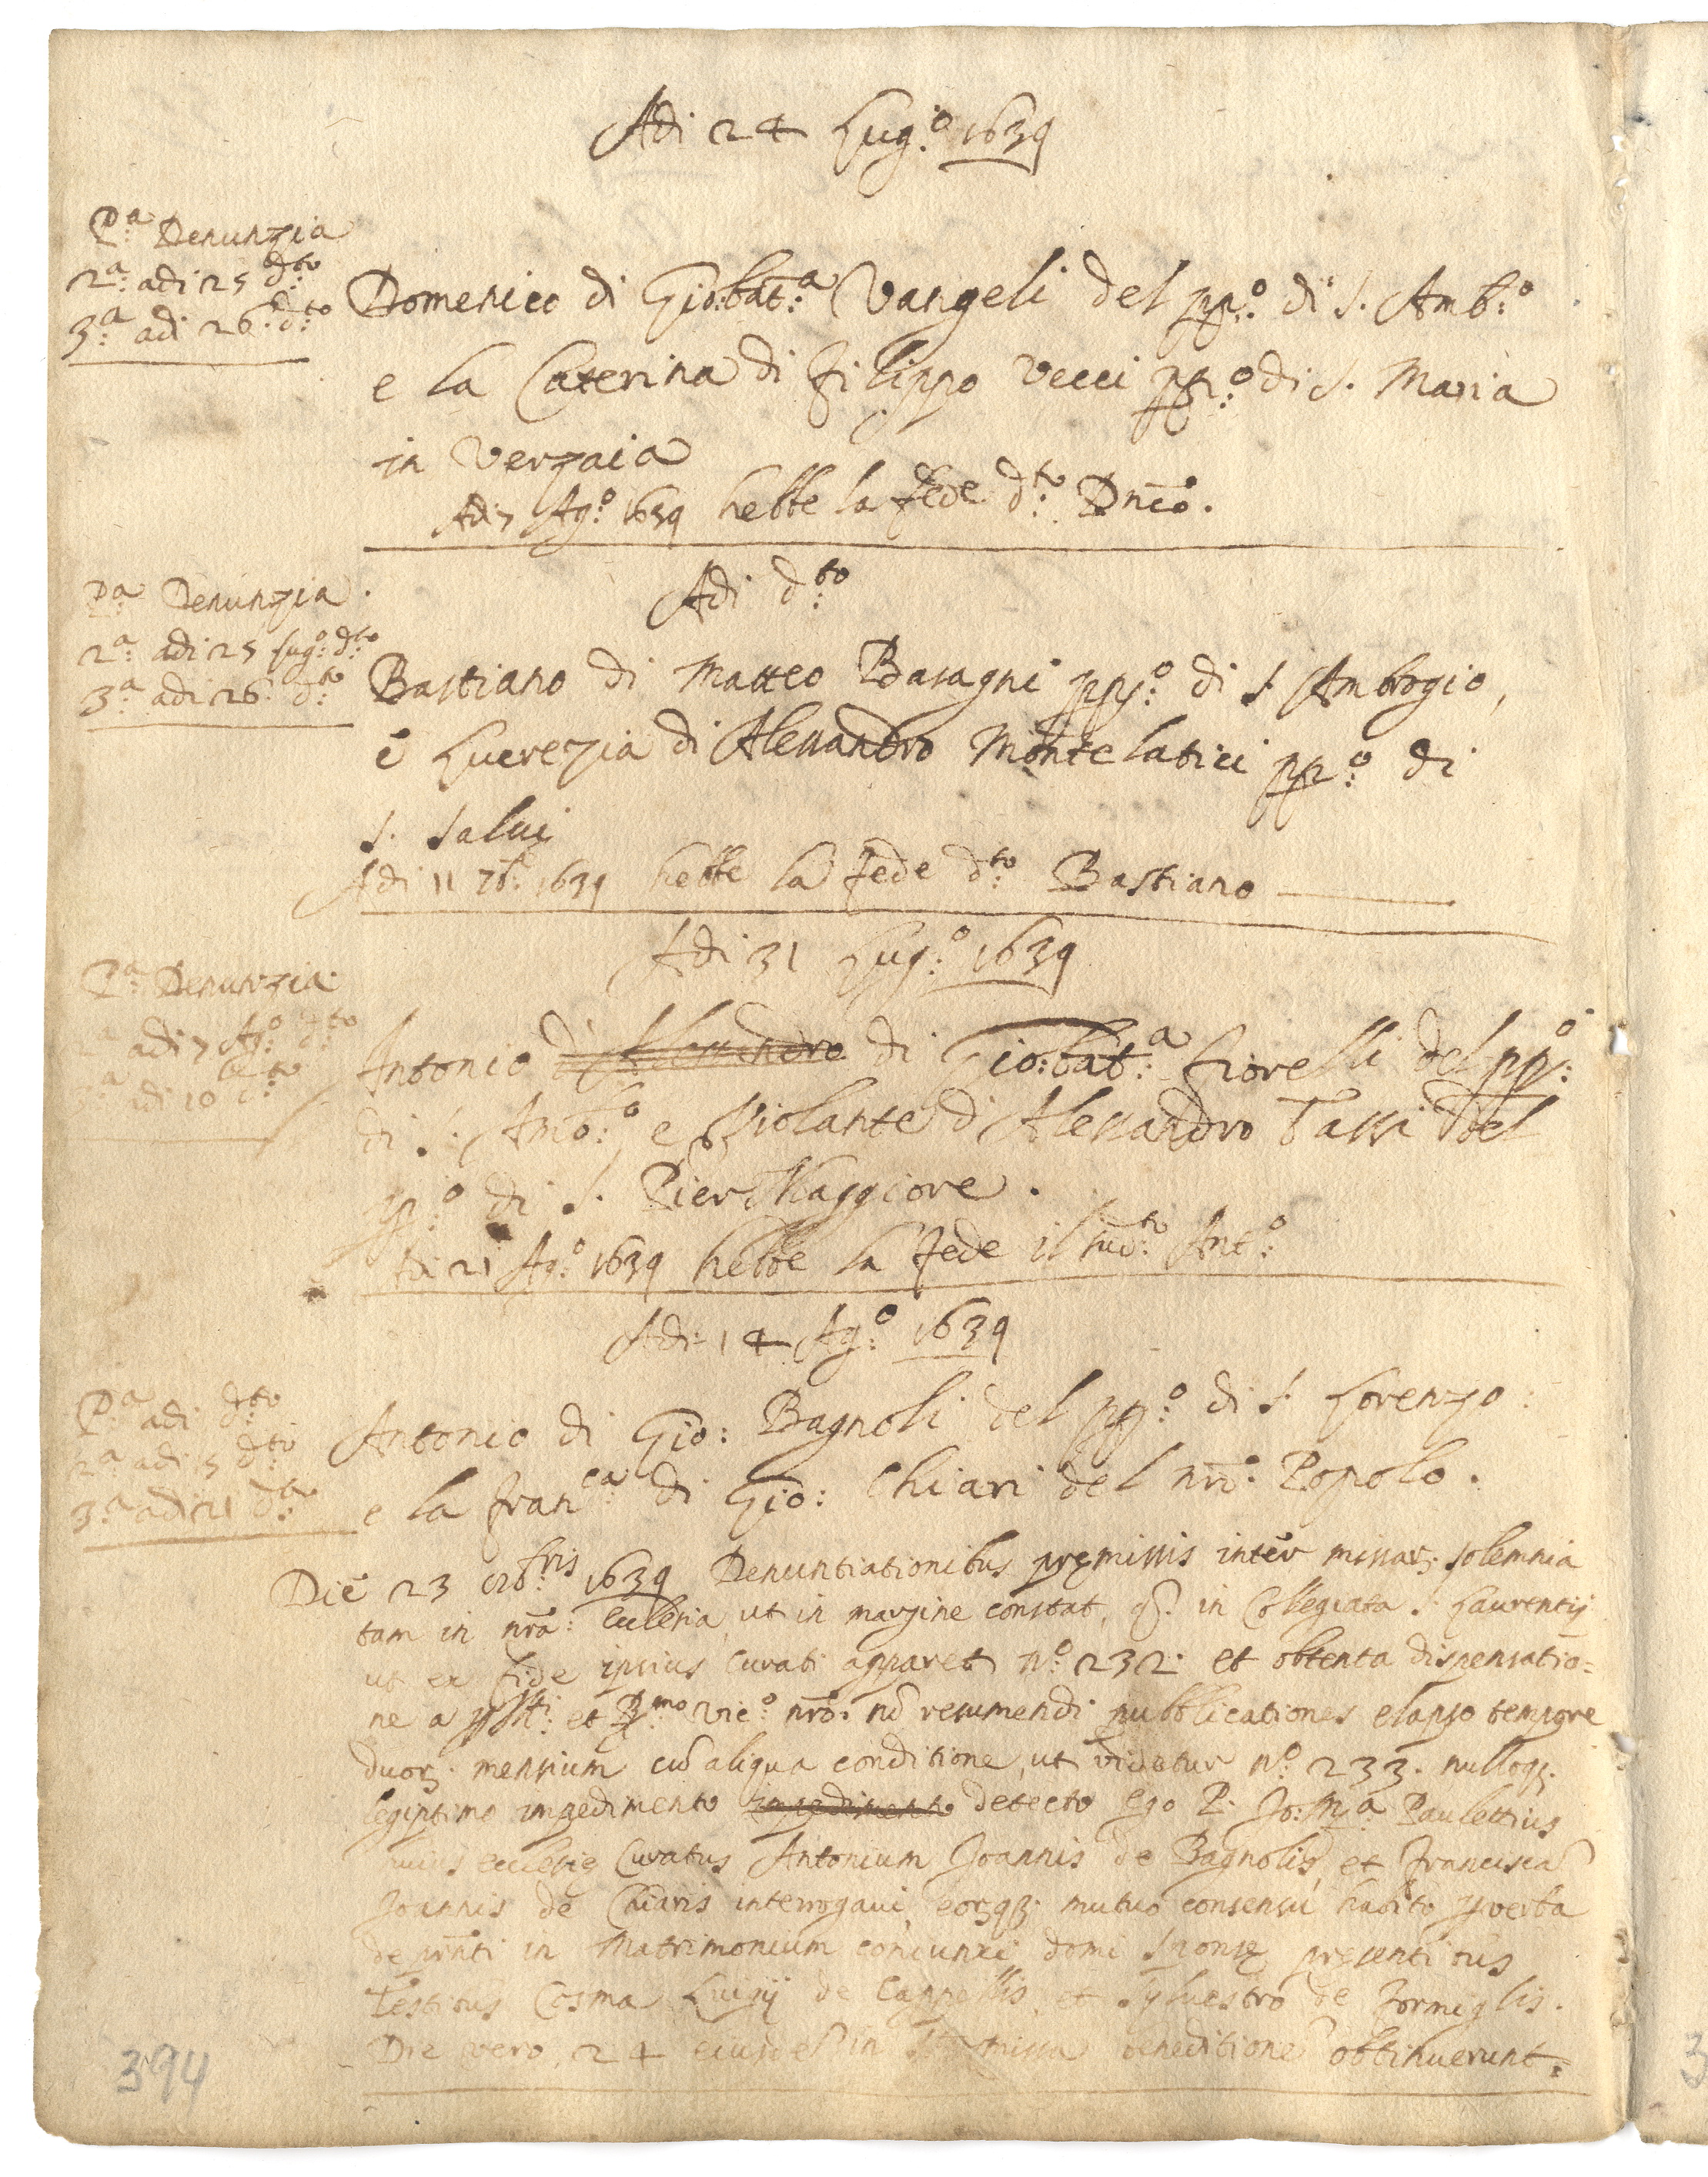 Adi 24 Lug:º 1639
P:ª Denunzia
2:ª adi 25 d:to
3:ª adi 26. d:to
Domenico di Gio:bat:ª Vangeli del pp:º di S. Amb:º
e la Caterina di Filippo Vecci pp:º di S. Maria
in Verzaia
Adi 7 Ag:º 1639 hebbe la fede d:to Dnĩco.
Adi d:to
P:ª Denunzia.
2:ª adi 25 Lug:º d:to
3:ª adi 26. d:to
Bastiano di Matteo Baragni pp:º di S. Ambrogio,
e Lucrezia di Alessandro Montelatici pp:º di
S. Salvi
Adi 11 7b:e 1639 hebbe la fede d:to Bastiano
Adi 31 Lug:º 1639
P:ª Denunzia
adi 7 Ag:º d:to
3:ª adi 10 d:to
Antonio di Alessandro di Gio:bat:ª Fiorelli del pp:º
di S. Amb:º e Violante d'Alessandro Tassi del
pp:º di S. Pier Maggiore.
Adi 21 Ag:º 1639 hebbe la fede il sud:to Ant:º
Adi 14 Ag:º 1639
P:ª adi d:to
2:ª adi 15 d:to
3:ª adi 21 d:to
Antonio di Gio: Bagnoli del pp:º di S. Lorenzo
e la Fran:ca di Gio: Chiari del nrõ: Popolo.
Die 23 8b:ris 1639 Denuntiationibus pręmissis inter missar: solemnia
tam in nrã: Ecclesia, ut in margine constat, in Collegiata S. Laurentij
ut ex fide ipsius Curati apparet nº: 232. et obtenta dispensatio=
ne a et R:mo Vic:º nrõ: nõ resumendi pubblicationes elapso tempore
duor: mensium cũ aliqua conditione, ut videtur nº 233. nulloq;
legiptimo impedimento impedimento detecto Ego P. Jo: M:ª Paulettius
huius ecclesię Curatus Antonium Joannis de Bagnolis, et Franciscã
Joannis de Chiaris interrogavi, eorq; mutuo consensu habito p verba
de prñti in Matrimonium coniunxi domi sponsę presentibus
Testibus Cosma Luisij de Cappellis, et Sylvestro de Formiglis.
Die vero 24 eiusdẽ in missa beneditionẽ obtinuerunt.
394